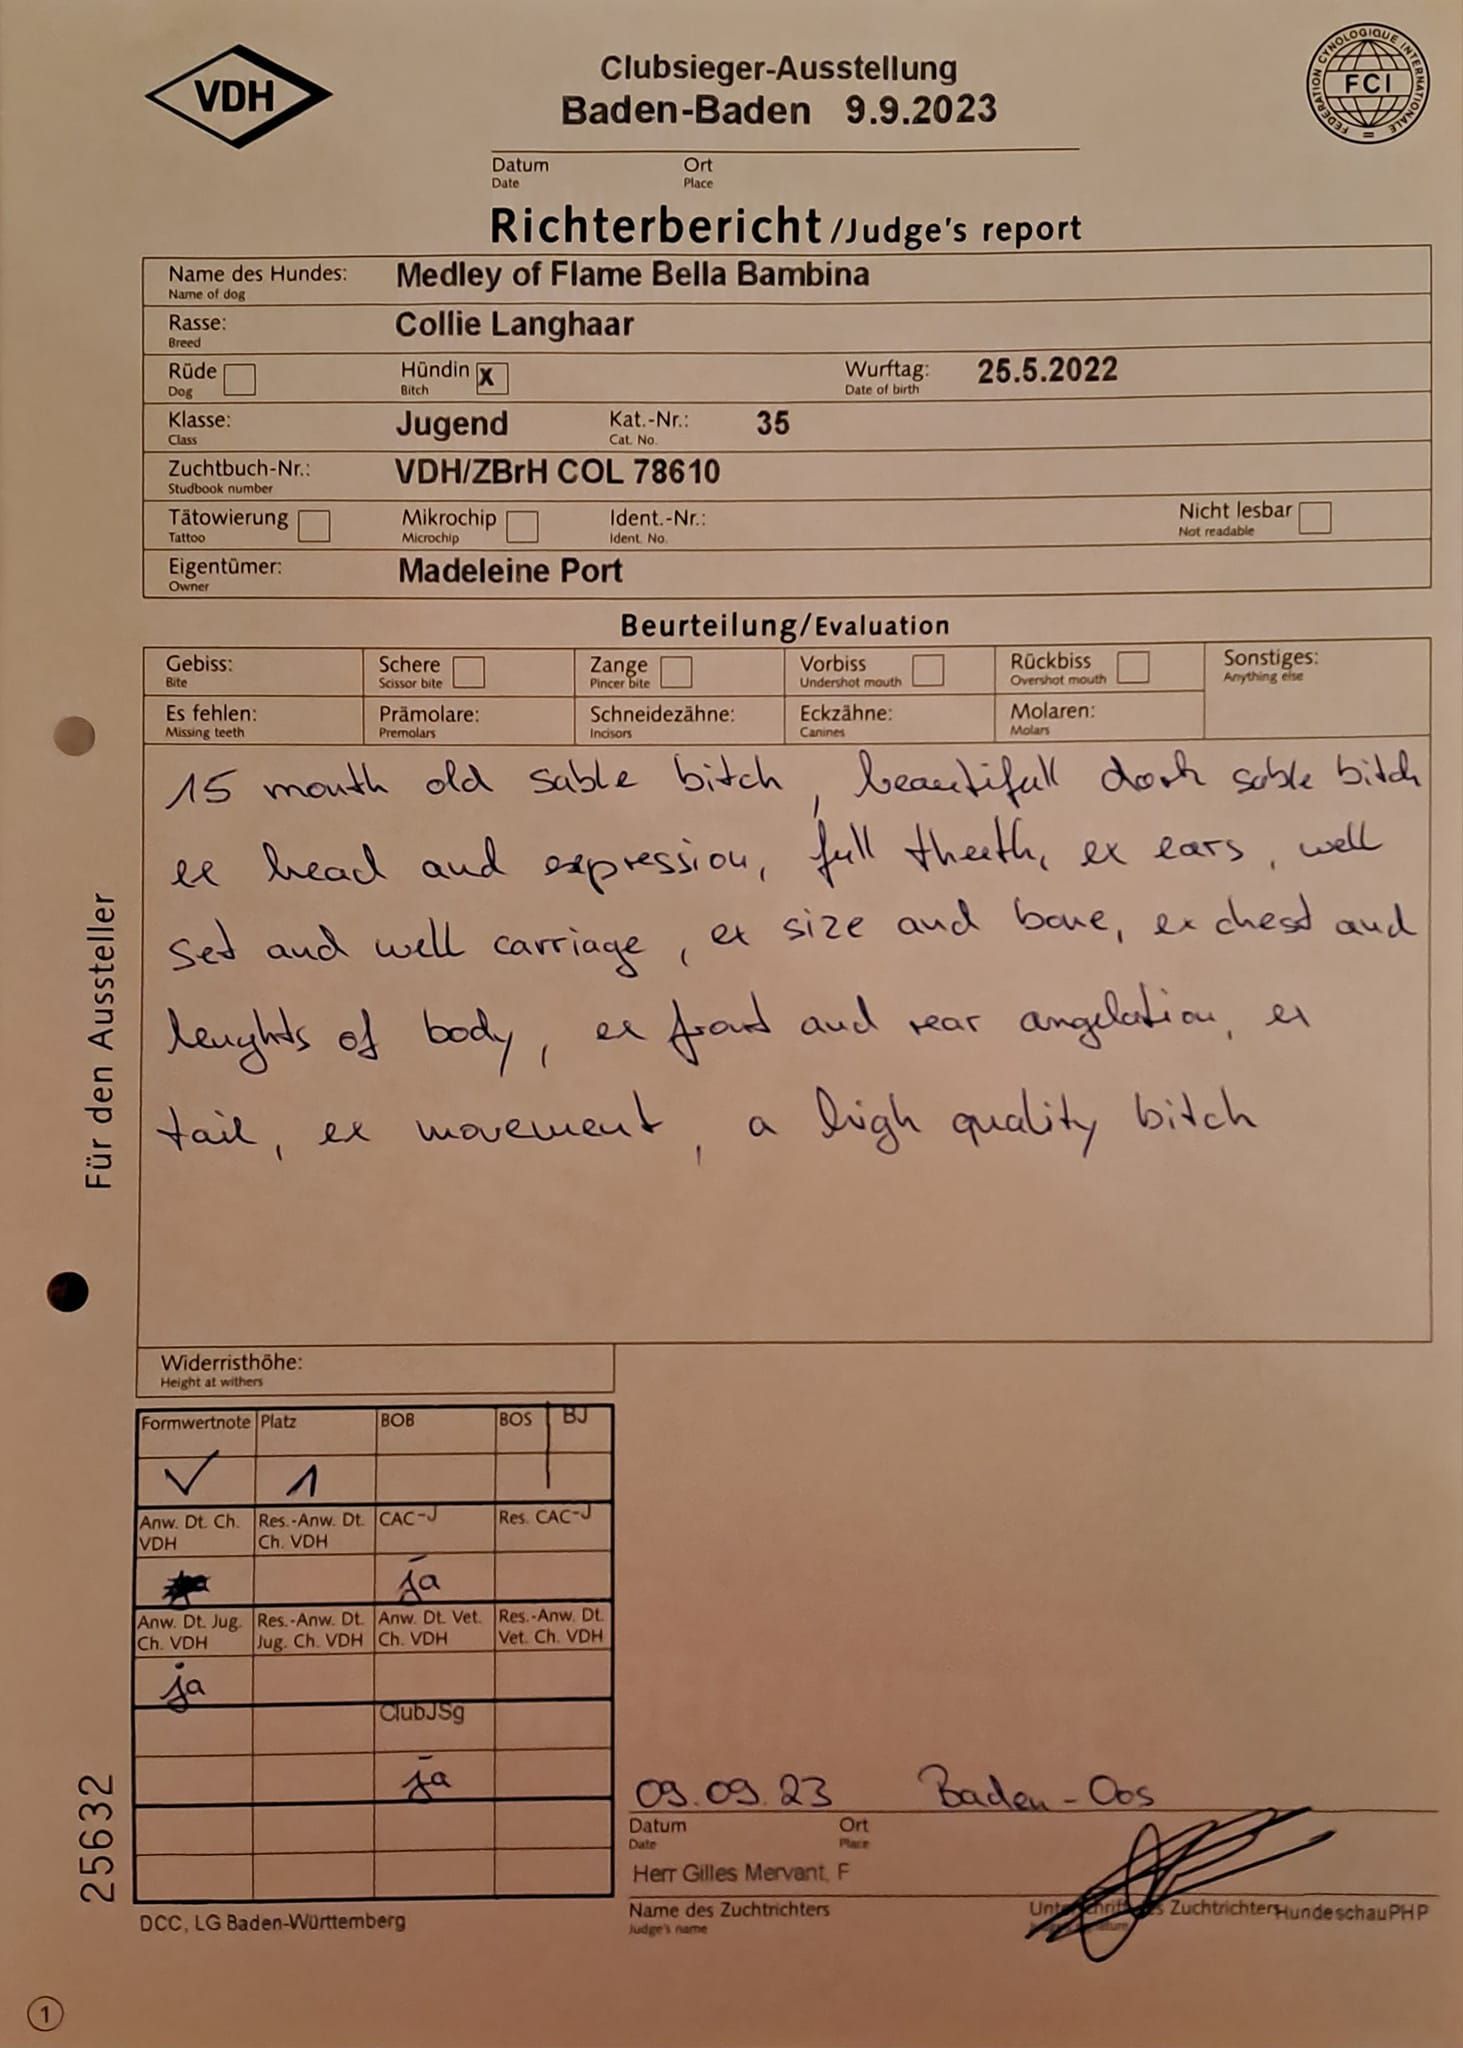 VDH
Clubsieger-Ausstellung
Baden-Baden 9.9.2023
FEDERATION CYNOLOGIQUE INTERNATIONALE
FCI
Datum Ort
Date Place
Richterbericht/Judge's report
Name des Hundes: Medley of Flame Bella Bambina
Name of dog
Rasse: Collie Langhaar
Breed
Rüde Hündin X Wurftag: 25.5.2022
Dog Bitch Date of birth
Klasse: Jugend Kat.-Nr.: 35
Class Cat. No.
Zuchtbuch-Nr.: VDH/ZBrH COL 78610
Studbook number
Tätowierung Mikrochip Ident.-Nr.: Nicht lesbar
Tattoo Microchip Ident. No. Not readable
Eigentümer: Madeleine Port
Owner
Beurteilung/Evaluation
Gebiss: Schere Zange Vorbiss Rückbiss Sonstiges:
Bite Scissor bite Pincer bite Undershot mouth Overshot mouth Anything else
Es fehlen: Prämolare: Schneidezähne: Eckzähne: Molaren:
Missing teeth Premolars Incisors Canines Molars
15 month old sable bitch, beautifull dark sable bitch
ex head and expression, full theeth, ex ears, well
set and well carriage, ex size and bone, ex chest and
lenghts of body, ex front and rear angelation, ex
tail, ex movement, a high quality bitch
Für den Aussteller
Widerristhöhe:
Height at withers
Formwertnote Platz BOB BOS BJ
✓ 1
Anw. Dt. Ch. Res.-Anw. Dt. CAC-J Res. CAC-J
VDH Ch. VDH
ja
Anw. Dt. Jug. Res.-Anw. Dt. Anw. Dt. Vet. Res.-Anw. Dt.
Ch. VDH Jug. Ch. VDH Ch. VDH Vet. Ch. VDH
ja
ClubJSg
ja
25632
09.09.23 Baden-Oos
Datum Ort
Date Place
Herr Gilles Mervant, F
Name des Zuchtrichters Zuchtrichters HundeschauPHP
Judge's name
DCC, LG Baden-Württemberg
1